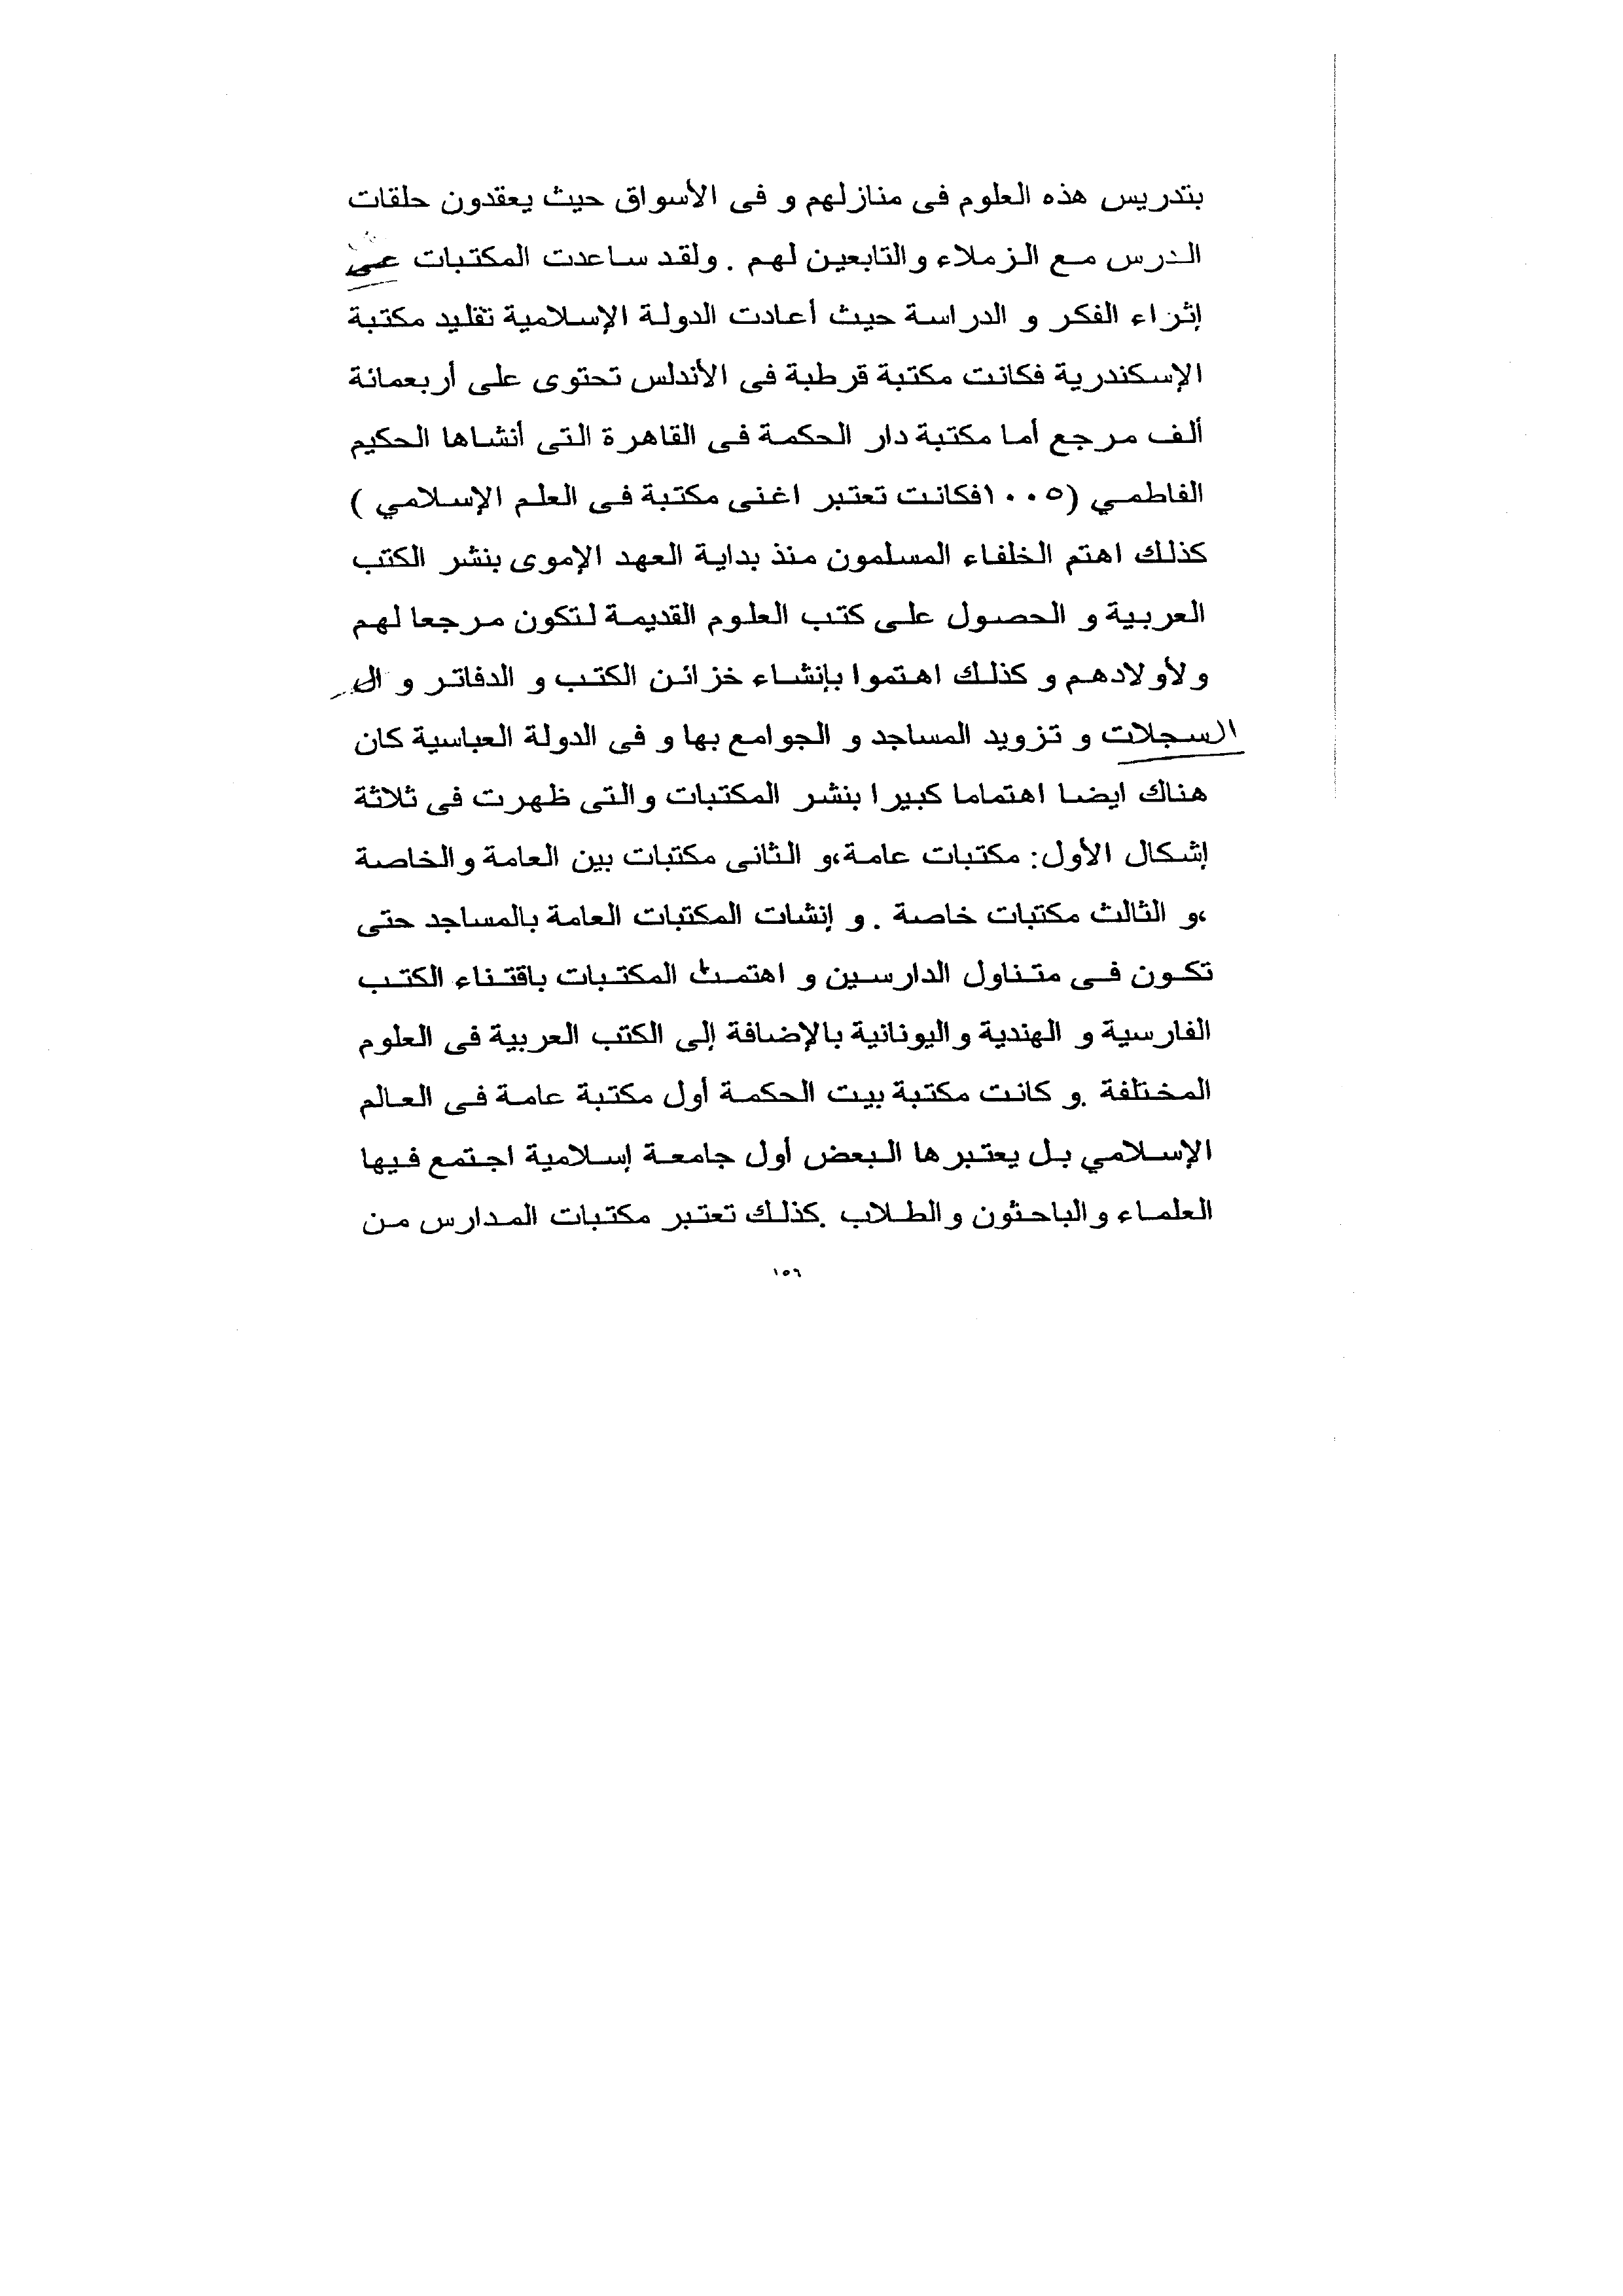 بتدريس هذه العلوم فى منازلهم و فى الأسواق حيث يعقدون حلقات
الدرس مع الزملاء والتابعين لهم . ولقد ساعدت المكتبات على
إثراء الفكر و الدراسة حيث أعادت الدولة الإسلامية تقليد مكتبة
الإسكندرية فكانت مكتبة قرطبة فى الأندلس تحتوى على أربعمائة
ألف مرجع أما مكتبة دار الحكمة فى القاهرة التى أنشاها الحكيم
الفاطمي (١٠٠٥فكانت تعتبر اغنى مكتبة فى العلم الإسلامي )
كذلك اهتم الخلفاء المسلمون منذ بداية العهد الإموى بنشر الكتب
العربية و الحصول على كتب العلوم القديمة لتكون مرجعا لهم
ولأولادهم و كذلك اهتموا بإنشاء خزائن الكتب و الدفاتر و ال
السجلات و تزويد المساجد و الجوامع بها و فى الدولة العباسية كان
هناك ايضا اهتماما كبيرا بنشر المكتبات والتى ظهرت فى ثلاثة
إشكال الأول: مكتبات عامة،و الثانى مكتبات بين العامة والخاصة
،و الثالث مكتبات خاصة . و إنشات المكتبات العامة بالمساجد حتى
تكون فى متناول الدارسين و اهتمت المكتبات باقتناء الكتب
الفارسية و الهندية واليونانية بالإضافة إلى الكتب العربية فى العلوم
المختلفة .و كانت مكتبة بيت الحكمة أول مكتبة عامة فى العالم
الإسلامي بل يعتبرها البعض أول جامعة إسلامية اجتمع فيها
العلماء والباحثون والطلاب .كذلك تعتبر مكتبات المدارس من
١٥٦